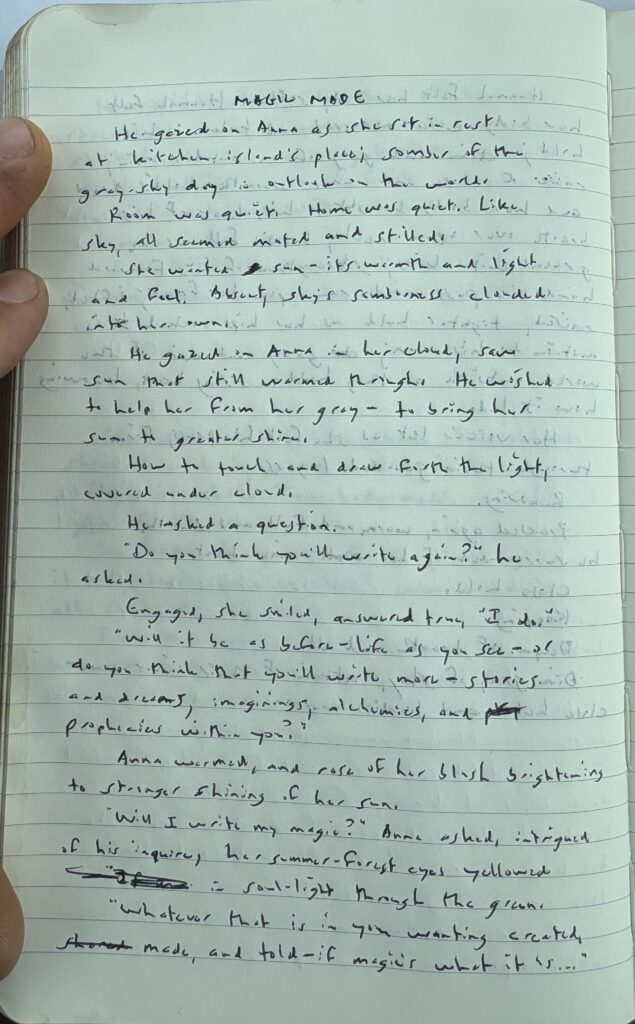 MAGIC MADE
He gazed on Anna as she sat in rest
at kitchen island's place; somber of the
gray-sky day in outlook on the world.
Room was quiet. Home was quiet. Like
sky, all seemed muted and stilled.
She wanted sun - its warmth and light
and feel. Absent, sky's somberness clouded
into her own.
He gazed on Anna in her cloud, saw
sun that still warmed through. He wished
to help her from her gray - to bring her
sun to greater shine.
How to touch and draw forth the light,
covered under cloud.
He asked a question.
"Do you think you'll write again?" he
asked.
Engaged, she smiled, answered true, "I do."
"Will it be as before - life as you see - or
do you think that you'll write more - stories
and dreams, imaginings, alchemies, and
prophecies within you?"
Anna warmed, and rose of her blush brightening
to stronger shining of her sun.
"Will I write my magic?" Anna asked, intrigued
of his inquiry, her summer-forest eyes yellowed
in soul-light through the green.
"Whatever that is in you wanting created,
shared made, and told - if magic's what it is..."